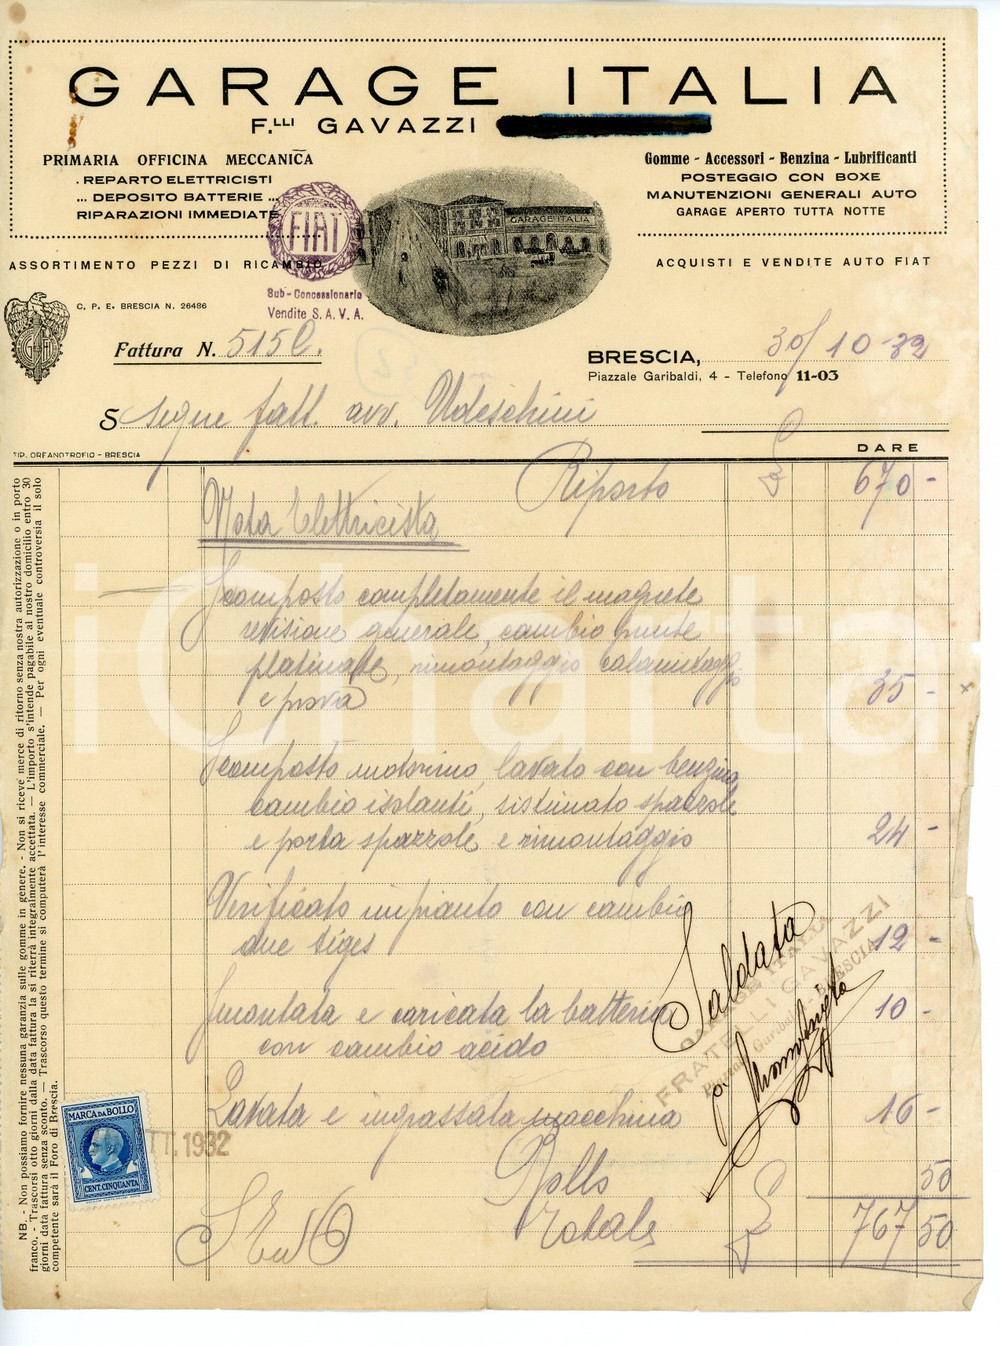 GARAGE ITALIA
F.LLI GAVAZZI
PRIMARIA OFFICINA MECCANICA
. REPARTO ELETTRICISTI
... DEPOSITO BATTERIE ...
RIPARAZIONI IMMEDIATE
Gomme - Accessori - Benzina - Lubrificanti
POSTEGGIO CON BOXE
MANUTENZIONI GENERALI AUTO
GARAGE APERTO TUTTA NOTTE
FIAT
GARAGE ITALIA
ASSORTIMENTO PEZZI DI RICAMBIO
ACQUISTI E VENDITE AUTO FIAT
Sub-Concessionario
Vendite S. A. V. A.
C. P. E. BRESCIA N. 26486
Fattura N. 515 C.
BRESCIA, 30/10-32
Piazzale Garibaldi, 4 - Telefono 11-03
S segue fatt. avv. Udeschini
TIP. ORFANOTROFIO - BRESCIA
DARE
Riporto £ 670 -
Nota Elettricista
Scomposto completamente il magnete
revisione generale, cambio punte
platinate, rimontaggio calamitaggio
e prova 35 -
Scomposto motorino, lavato con benzina,
cambio isolanti, sistemato spazzole
e porta spazzole e rimontaggio 24 -
Verificato impianto con cambio
due 12 -
Smontata e caricata la batteria
con cambio acido 10 -
Lavata e ingrassata macchina 16 -
Bollo 50
Totale £ 767 50
S E u O
Saldata
GARAGE ITALIA
FRATELLI GAVAZZI
Piazzale Garibaldi BRESCIA
MARCA DA BOLLO
CENT. CINQUANTA
TT. 1932
NB. - Non possiamo fornire nessuna garanzia sulle gomme in genere. - Non si riceve merce di ritorno senza nostra autorizzazione o in porto
franco. - Trascorsi otto giorni dalla data fattura la si riterrà integralmente accettata. — L'importo s'intende pagabile al nostro domicilio entro 30
giorni data fattura senza sconto. — Trascorso questo termine si computerà l'interesse commerciale. — Per ogni eventuale controversia il solo
competente sarà il Foro di Brescia.
iCharta